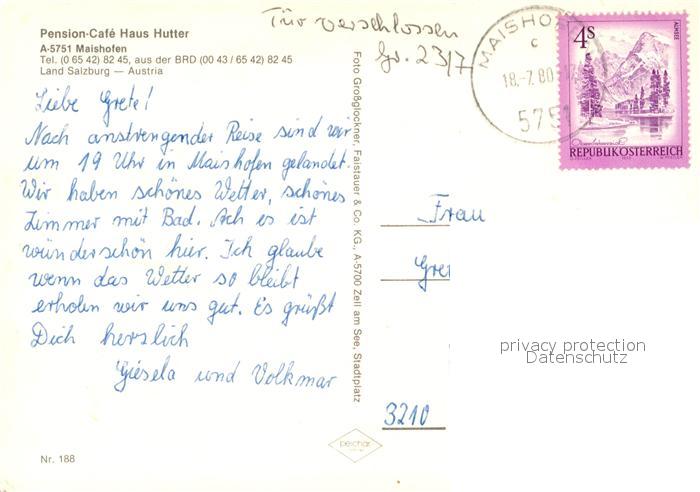 Pension-Café Haus Hutter
A-5751 Maishofen
Tel. (0 65 42) 82 45, aus der BRD (00 43 / 65 42) 82 45
Land Salzburg — Austria
Tür verschlossen
Gr. 23/7
MAISHO
c
18.-7.80
5751
4s
ALMSEE
REPUBLIK ÖSTERREICH
Liebe Grete!
Nach anstrengender Reise sind wir
um 19 Uhr in Maishofen gelandet.
Wir haben schönes Wetter, schönes
Zimmer mit Bad. Ach es ist
wünderschön hier. Ich glaube
wenn das Wetter so bleibt
erholen wir uns gut. Es grüßt
Dich herzlich
Giesela und Volkmar
Foto Großglockner, Faistauer & Co. KG., A-5700 Zell am See, Stadtplatz
Frau
Gre
3210
privacy protection
Datenschutz
peichar
Nr. 188